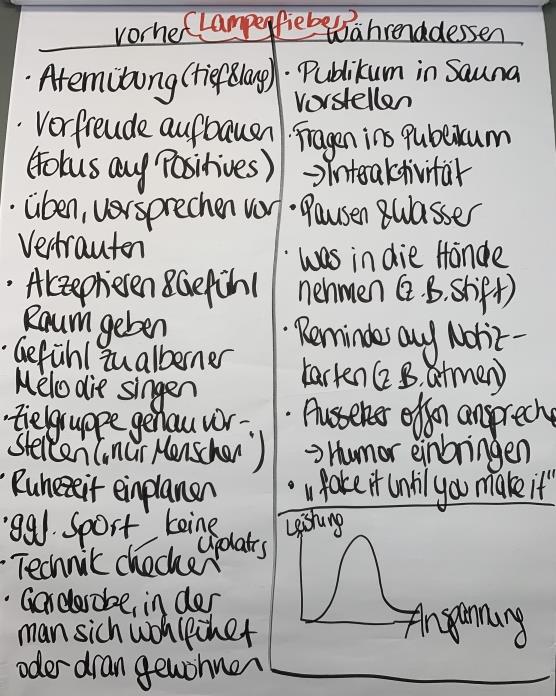 Lampenfieber
vorher
• Atemübung (tief & lang)
• Vorfreude aufbauen
(Fokus auf Positives)
• üben, vorsprechen vor
Vertrauten
• Akzeptieren & Gefühl
Raum geben
• Gefühl zu alberner
Melodie singen
• Zielgruppe genau vor-
stellen ("nur Menschen")
• Ruhezeit einplanen
• ggf. Sport
• Technik checken – keine
Updates
• Garderobe, in der
man sich wohlfühlt
oder dran gewöhnen
währenddessen
• Publikum in Sauna
vorstellen
• Fragen ins Publikum
→ Interaktivität
• Pausen & Wasser
• was in die Hände
nehmen (z.B. Stift)
• Reminder auf Notiz-
karten (z.B. atmen)
• offen anspreche
→ Humor einbringen
• „fake it until you make it"
Leistung
Anspannung